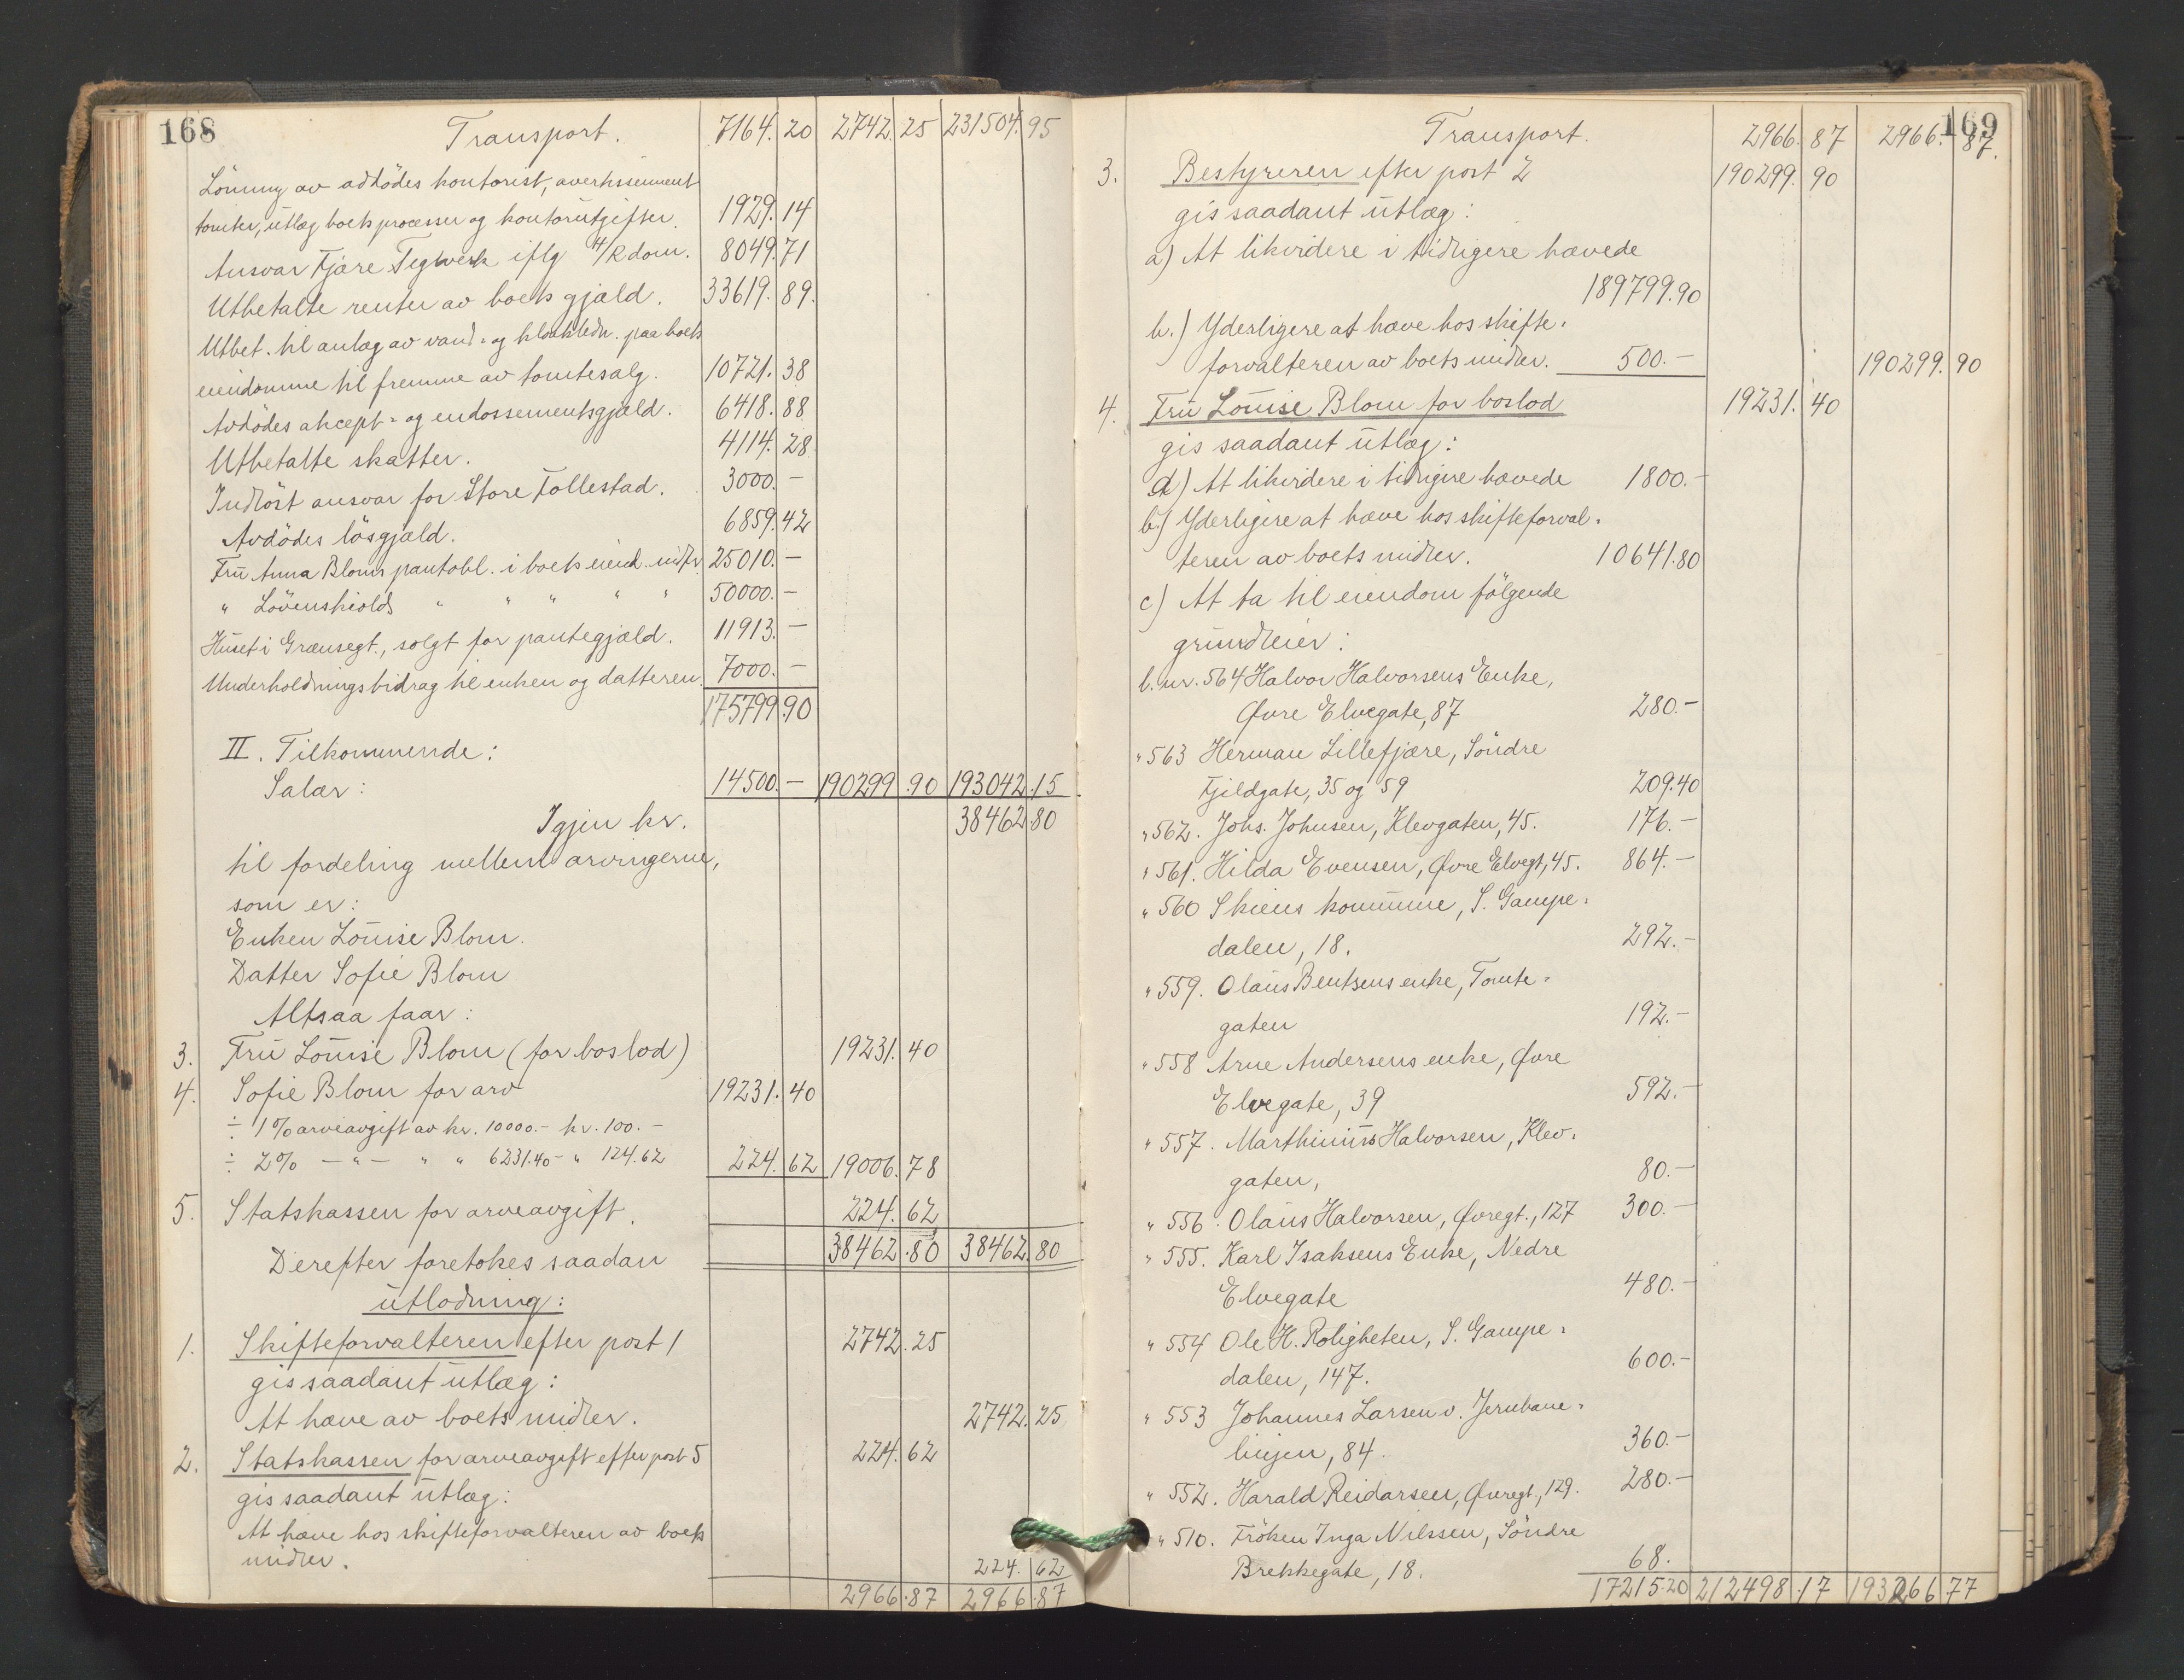 168
Transport. 7164. 20 2742. 25 231504. 95
Lönning av avdödes kontorist, avertissement
tomter, utlæg boets processer og kontorutgifter. 1929. 14
Ansvar Fjære Teglverk iflg H/R dom. 8049. 71
Utbetalte renter av boets gjæld. 33619. 89.
Utbet. til anlæg av vand- og kloakledn. paa boets
eiendomme til fremme av tomtesalg. 10721. 38
Avdödes akcept- og endossementsgjæld. 6418. 88
Utbetalte skatter. 4114. 28
Indlöst ansvar for Store Follestad. 3000. –
Avdödes lösgjæld. 6859. 42
Frü Anna Bloms pantobl. i boets eiend. 25010. –
" Lövenskiolds " " " " " 50000. –
Huset i Grænsegt., solgt for pantegjæld. 11913. –
Underholdningsbidrag til enken og datteren. 7000. –
175799. 90
II. Tilkommende:
Salær: 14500. – 190299. 90 193042. 15
Igjen kr. 38462. 80
til fordeling mellem arvingerne,
som er:
Enken Louise Blom.
Datter Sofie Blom
Altsaa faar:
3. Frü Louise Blom (for boslod) 19231. 40
4. Sofie Blom for arv 19231. 40
÷ 1% arveavgift av kr. 10000.– kr. 100. –
÷ 2% – " – " " 6231.40 – " 124.62 224. 62 19006. 78
5. Statskassen for arveavgift. 224. 62
38462. 80 38462. 80
Derefter foretokes saadan
utlodning:
1. Skifteforvalteren efter post 1 2742. 25
gis saadant utlæg:
At hæve av boets midler. 2742. 25
2. Statskassen for arveavgift efter post 5 224. 62
gis saadant utlæg:
At hæve hos skifteforvalteren av boets
midler. 224. 62
2966. 87 2966. 87
169
Transport. 2966. 87 2966. 87.
3. Bestyreren efter post 2 190299. 90
gis saadant utlæg:
a) At likvidere i tidligere hævede
189799.90
b.) Yderligere at hæve hos skifte-
forvalteren av boets midler. 500.– 190299. 90
4. Frü Louise Blom for boslod 19231. 40
gis saadant utlæg:
a) At likvidere i tidligere hævede 1800.–
b.) Yderligere at hæve hos skifteforval-
teren av boets midler. 10641.80
c) At ta til eiendom fölgende
grundleier:
l. nr. 564 Halvor Halvorsens Enke,
Øvre Elvegate, 87 280.–
" 563 Herman Lillefjære, Söndre
Fjeldgate, 35 og 59 209.40
" 562. Johs. Johnsen, Klevgaten, 45. 176.–
" 561. Hilda Evensen, Øvre Elvegt, 45. 864.–
" 560 Skiens kommune, S. Gampe-
dalen, 18. 292.–
" 559. Olaus Bentsens enke, Tomte-
gaten 192.–
" 558 Arne Andersens enke, Øvre
Elvegate, 39 592.–
" 557. Marthinius Halvorsen, Klev-
gaten, 80.–
" 556. Olaus Halvorsen, Øvregt., 127 300.–
" 555. Karl Isaksens Enke, Nedre
Elvegate 480.–
" 554 Ole H. Roligheten, S. Gampe-
dalen, 147. 600.–
" 553 Johannes Larsen v. Jernbane-
linjen, 84. 360.–
" 552. Harald Reidarsen, Øvregt., 129. 280.–
" 510. Fröken Inga Nilssen, Söndre
Brekkegate, 18. 68.
17215.20 212498. 17 193266. 77